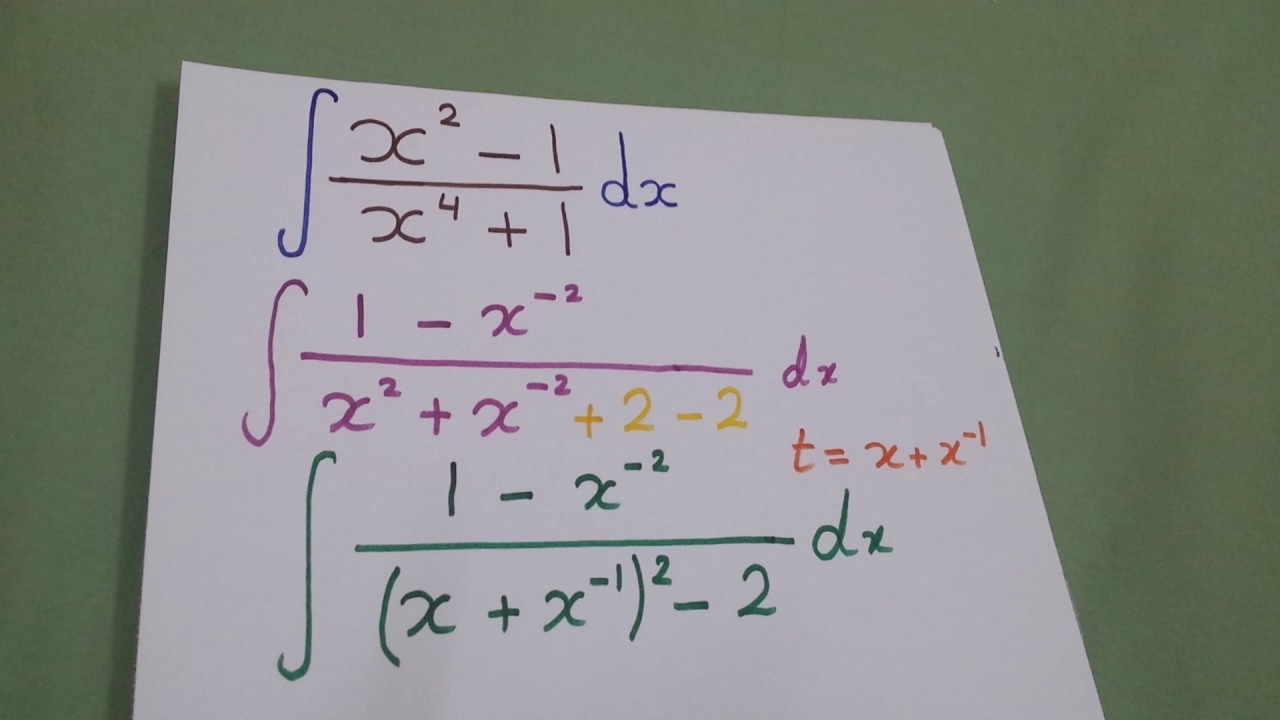 ∫ (x² − 1)/(x⁴ + 1) dx
∫ (1 − x⁻²)/(x² + x⁻² + 2 − 2) dx
t = x + x⁻¹
∫ (1 − x⁻²)/((x + x⁻¹)² − 2) dx